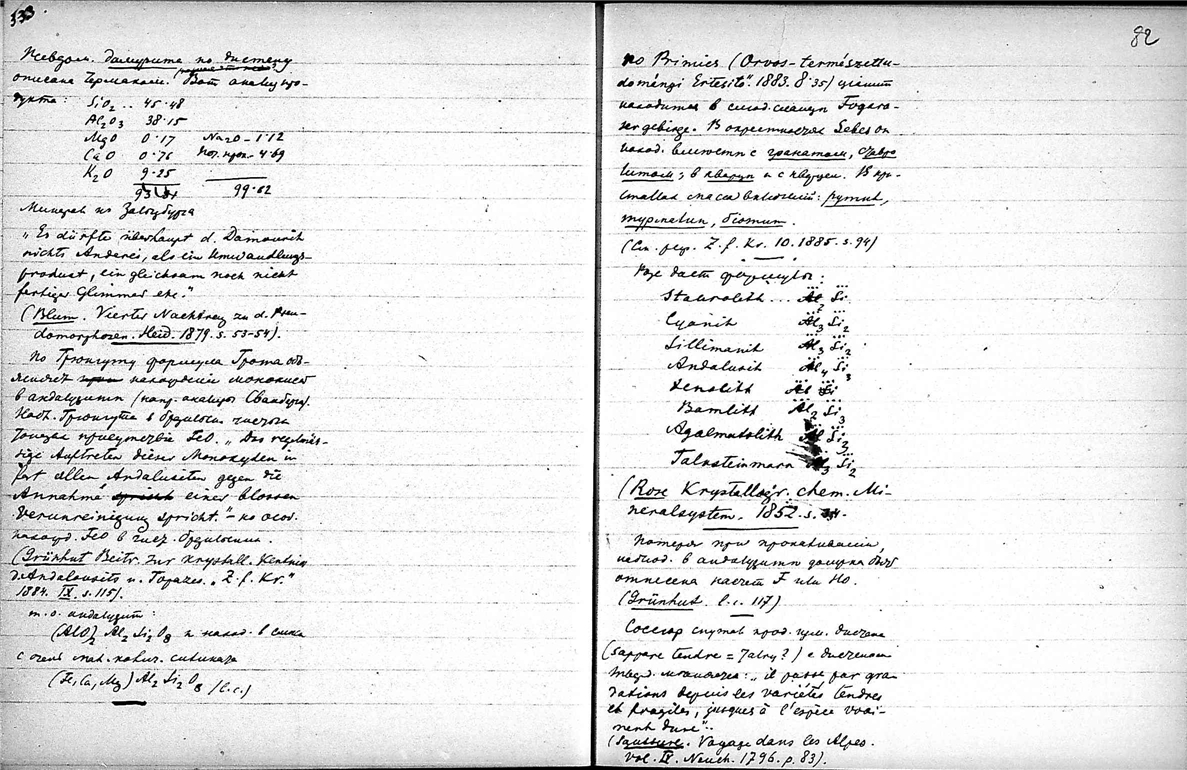 333
Псевдом. дамурита по дистену
описана Чермаком. Вот анализ про-
дукта:
SiO2 .. 45·48
Al2O3 38·15
MgO 0·17 Na2O – 1·12
CaO 0·76 пот. прок. – 4·69
K2O 9·25
99·62
Минерал из
„Es dürfte überhaupt d. Damourit
nichts Anderes, als ein Umwandlungs-
product, ein gleichsam noch nicht
fertiger Glimmer sein."
(Blum. Vierter Nachtrag zu d. Pseu-
domorphosen. Heid. 1879. s. 53–54).
По Грюнгуту формула Грота объ-
ясняет нахождении моноокисей
в андалузитах (напр. анализы Сванберга).
Грюнгута в
присутствие FeO. „Das regelmäs-
sige Auftreten dieser Monoxyden in
fast allen Andalusiten gegen die
Annahme einer blossen
Verunreinigung spricht." – но особ.
наход. FeO в
(Grünhut Beitr. zur krystall. Kentniss
d. Andalusits u. Topases. „Z. f. Kr."
1884. IX. s. 115).
т. о. андалузит:
(AlO)2 Al2 Si2 O8 и наход. в
с силиката
(Fe, Ca, Mg) Al2 Si2 O8 (l. c.)
82
по Primics (Orvos-természettu-
dományi Ertesitő". 1883. 8·35) цианит
находится в слюд. сланцах Fogara-
ser gebirge. В окрестностях Sebes он
наход. вместе с гранатом, ставро-
литом; в кварце и с кварцем. В кри-
сталлах масса включений: рутил,
турмалин, биотит.
(См. реф. Z. f. Kr. 10. 1885. s. 94)
Розе дает формулы:
Staurolith... Al2 Si
Cyanit Al3 Si2
Sillimanit Al3 Si2
Andalusit Al4 Si3
Xenolith Al Si
Bamlith Al2 Si3
Agalmatolith Al Si3
Talksteinmark Al3 Si2
(Rose Krystallogr. chem. Mi-
neralsystem. 1852. s.
Потеря при прокаливании,
наблюд. в андалузитах должна быть
отнесена насчет F или HO.
(Grünhut. l. c. 117)
Соссюр
(Sappare tendre = Talky?) с дистеном
„il passe par gra-
dations depuis les variétés tendres
et fragiles, jusques à l'espèce vrai-
ment dure".
(Saussure. Voyage dans les Alpes.
vol. IV. Neuch. 1796. p. 83).